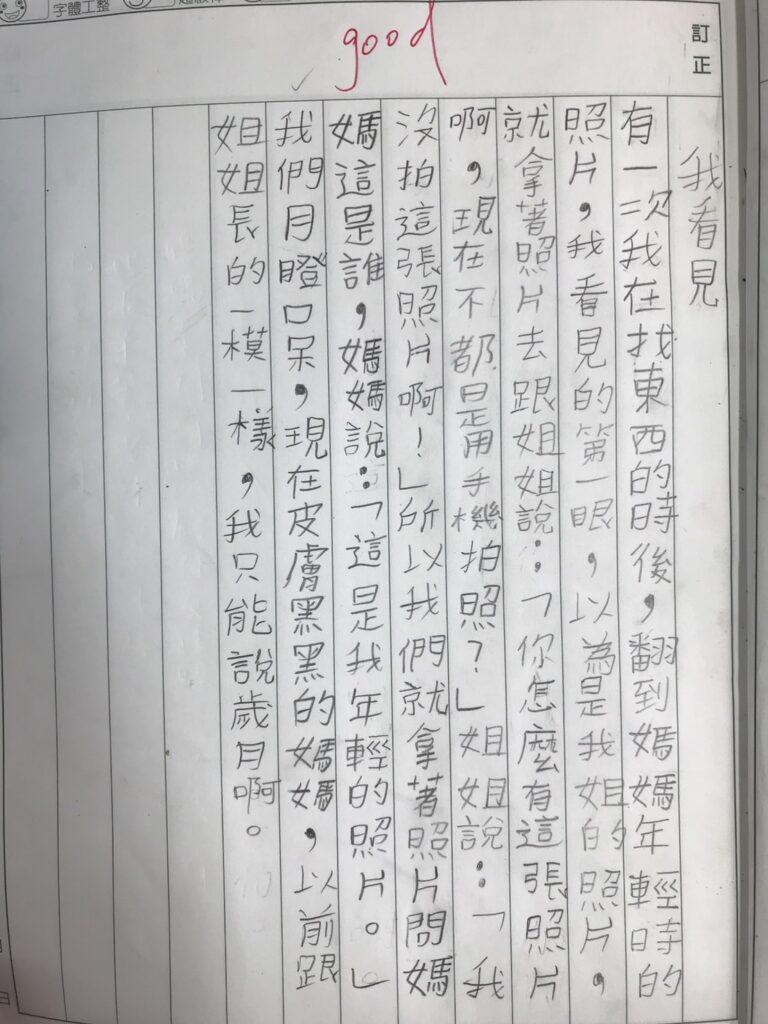 字體工整
good
訂正
我看見
有一次我在找東西的時後，翻到媽媽年輕時的
照片，我看見的第一眼，以為是我姐的照片，
就拿著照片去跟姐姐說：「你怎麼有這張照片
啊，現在不都是用手機拍照？」姐姐說：「我
沒拍這張照片啊！」所以我們就拿著照片問媽
媽這是誰，媽媽說：「這是我年輕的照片。」
我們目瞪口呆，現在皮膚黑黑的媽媽，以前跟
姐姐長的一模一樣，我只能說歲月啊。